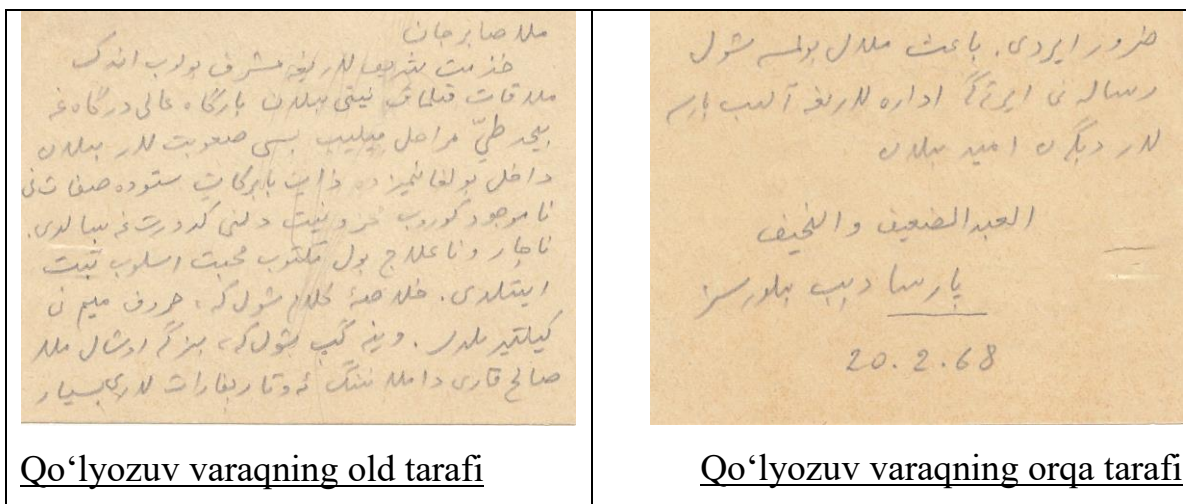 ملا صابر جان
خذمت شریفا للاریغه مشرف بولوب اندک
ملاقات قیلماق نیتی بیلان بارگاه عالی درگاه غه
بیحد طیّ مراحل بیلان بسی صعوبت للار بیلان
داخل بولغانمیزده ذات بابرکات ستوده صفات نی
نا موجود کوروب دلنی کدورت غه
ناچار و ناعلاج بول مکتوب محبت اسلوب ثبت
ایتیلدی. خلاصهٔ کلام شول که، حروف میم نی
وینه گپ شول که، بیزگه اوشال ملا
صالح قاری داملا نینگ بسیار
ضرور ایردی. باعث ملال بولمسه شول
رساله نی ایرته گه اداره للاریغه آلیب بارسه
للار دیگن امید بیلان
العبد الضعیف والنحیف
پارسا دیب بیلورسز
20.2.68
Qo‘lyozuv varaqning old tarafi
Qo‘lyozuv varaqning orqa tarafi